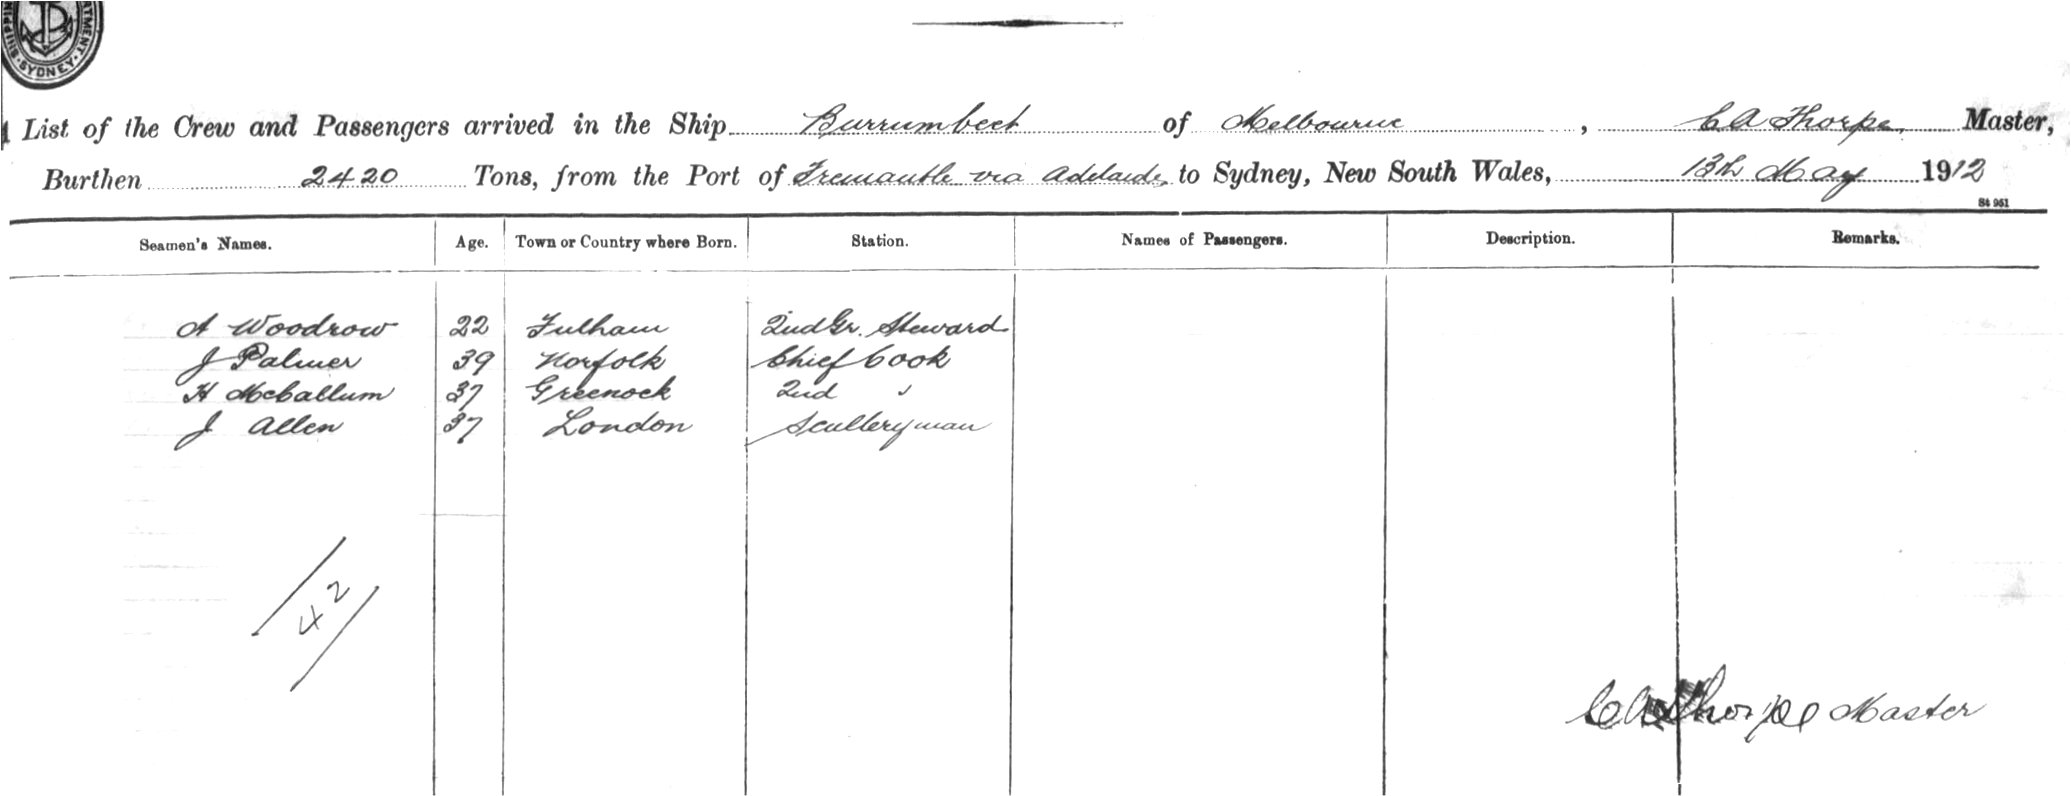 SHIPPIN
ATMENT
SYDNEY
List of the Crew and Passengers arrived in the Ship Burrumbeet of Melbourne, C A Thorpe Master,
Burthen 2420 Tons, from the Port of Fremantle via Adelaide to Sydney, New South Wales, 13th May 1912
St 951
Seamen's Names. Age. Town or Country where Born. Station. Names of Passengers. Description. Remarks.
A Woodrow 22 Fulham 2nd Gr. Steward
J Palmer 39 Norfolk Chief Cook
H McCallum 37 Greenock 2nd "
J Allen 37 London Scullery man
42
C A Thorpe Master